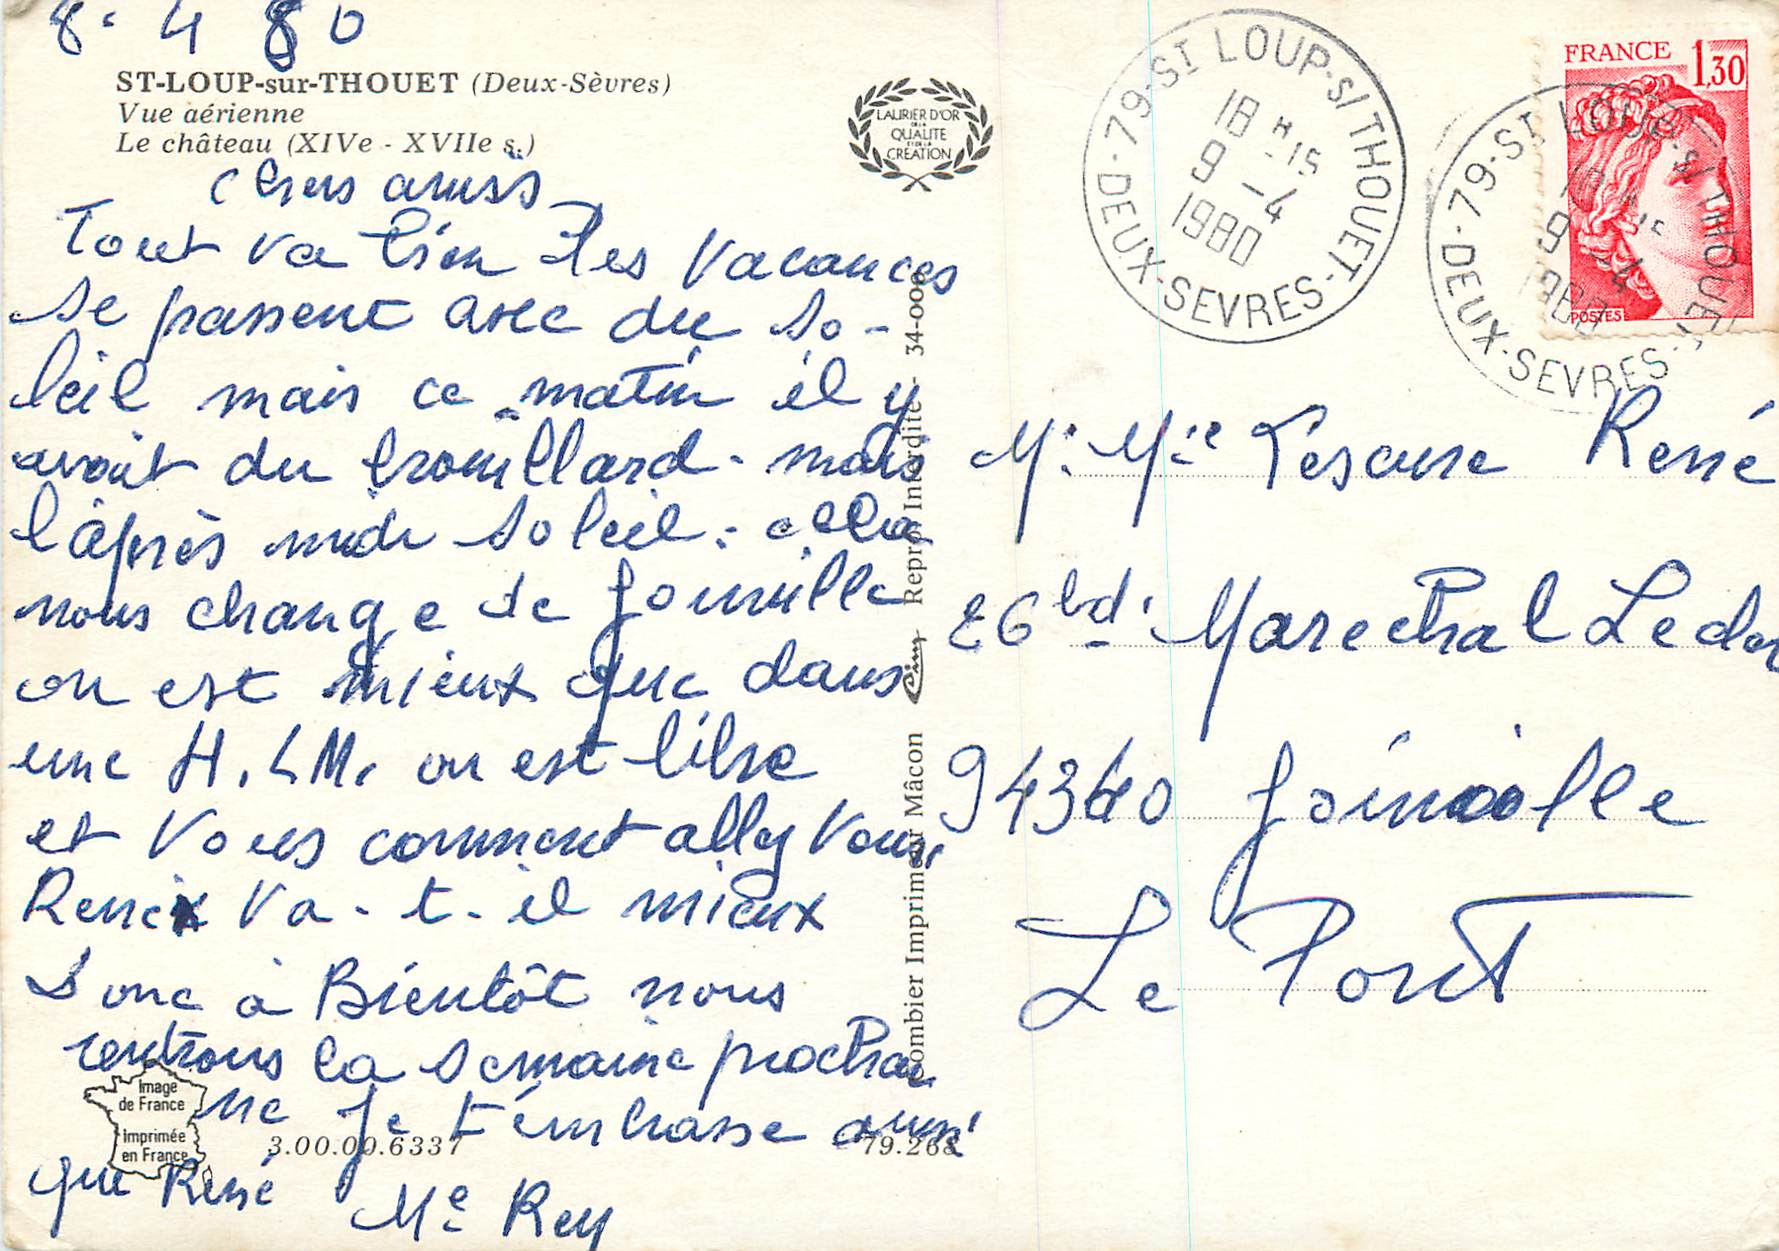 8. 4 80
ST-LOUP-sur-THOUET (Deux-Sèvres)
Vue aérienne
Le château (XIVe - XVIIe s.)
LAURIER D'OR
DE LA
QUALITE
ET DE LA
CREATION
Chers amis
Tout va bien les vacances
se passent avec du so-
leil mais ce matin il y
avait du brouillard. mais
l'après midi soleil. cela
nous change de Joinville
on est mieux que dans
une H.L.M. on est libre
et Vous comment allez Vous,
René Va-t-il mieux
Donc à Bientôt nous
rentrons la semaine prochai
ne Je t'embrasse ainsi
que René Me Rey
Image
de France
Imprimée
en France
3.00.00.6337
79.268
Combier Imprimeur Mâcon Cim Repro Interdite - 34-000
79-ST LOUP-S/THOUET-DEUX-SEVRES-
18 H 15
9 -4
1980
FRANCE 1,30
POSTES
79-ST LOUP-S/THOUET-DEUX-SEVRES-
9 -4
1980
Mr. Mme René
26 bd. Marechal Lecler
94340 Joinville
Le Pont